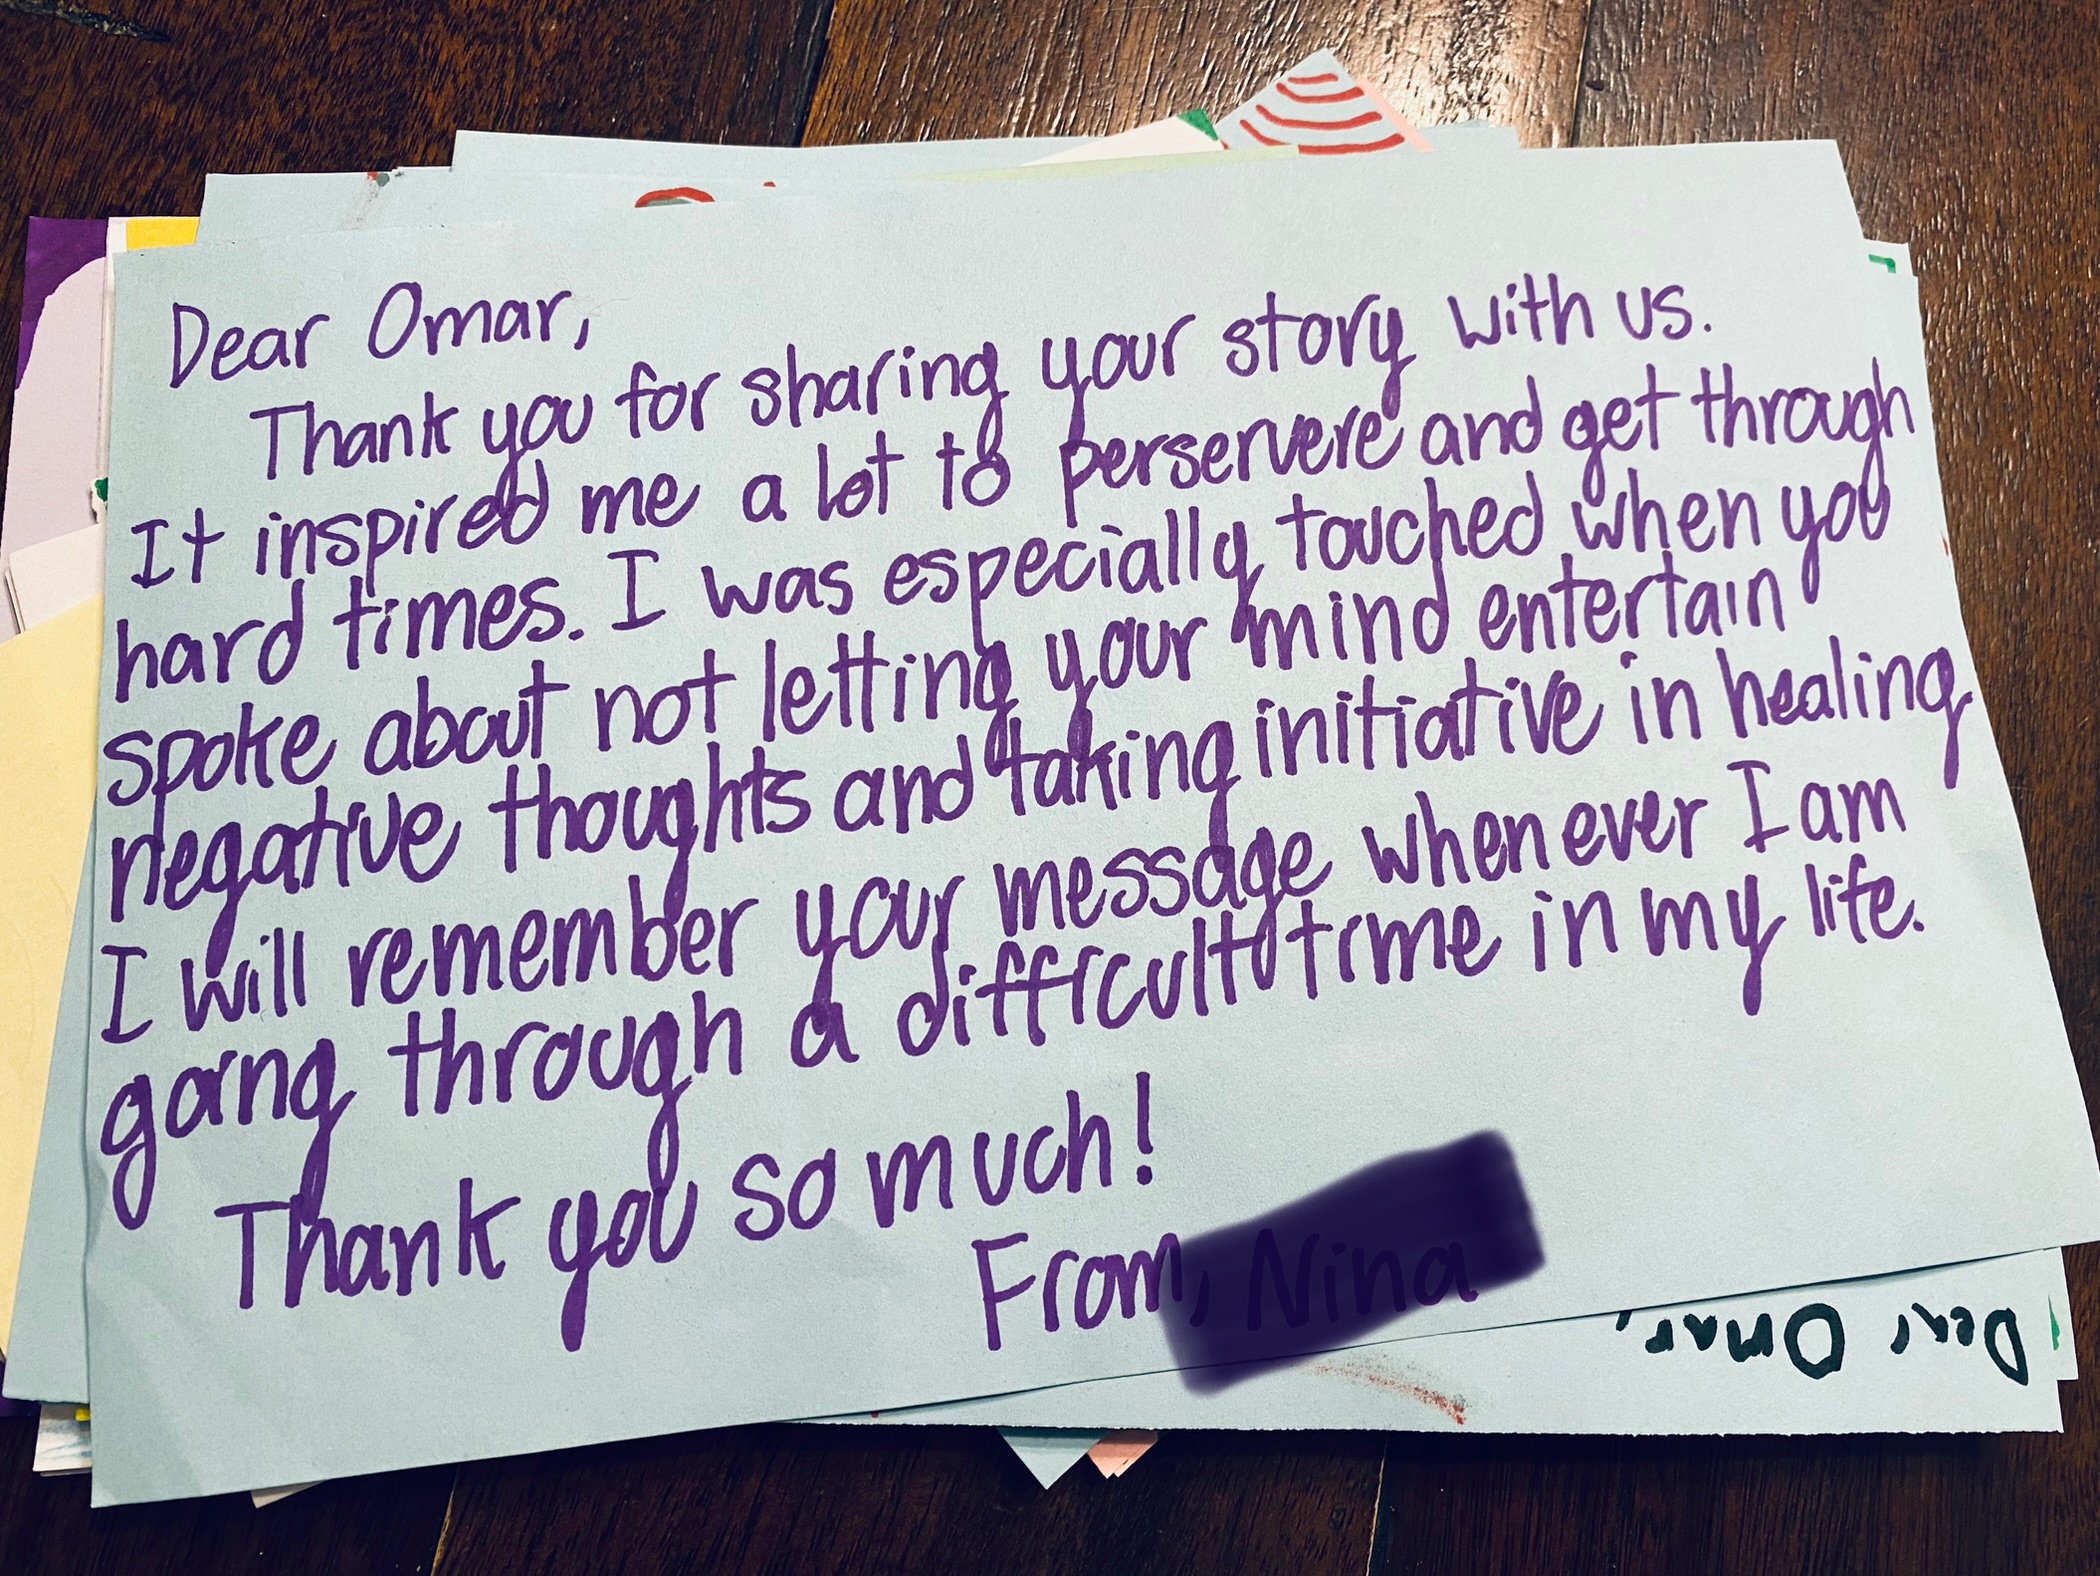 Dear Omar,
Thank you for sharing your story with us.
It inspired me a lot to perservere and get through
hard times. I was especially touched when you
spoke about not letting your mind entertain
negative thoughts and taking initiative in healing
I will remember your message whenever I am
going through a difficult time in my life.
Thank you so much!
From, Nina
Dear Omar,